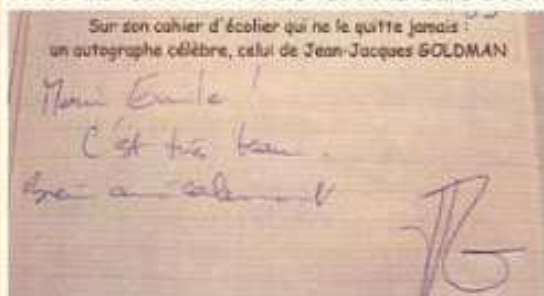 Sur son cahier d'écolier qui ne le quitte jamais :
un autographe célèbre, celui de Jean-Jacques GOLDMAN
Merci Emile !
C'est très beau.
Bien amicalement